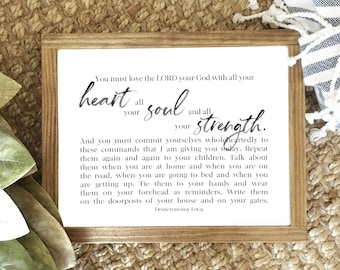 You must love the LORD your God with all your
heart all
your soul and all
your strength.
And you must commit yourselves wholeheartedly to
these commands that I am giving you today. Repeat
them again and again to your children. Talk about
them when you are at home and when you are on
the road, when you are going to bed and when you
are getting up. Tie them to your hands and wear
them on your forehead as reminders. Write them
on the doorposts of your house and on your gates.
Deuteronomy 6:5-9